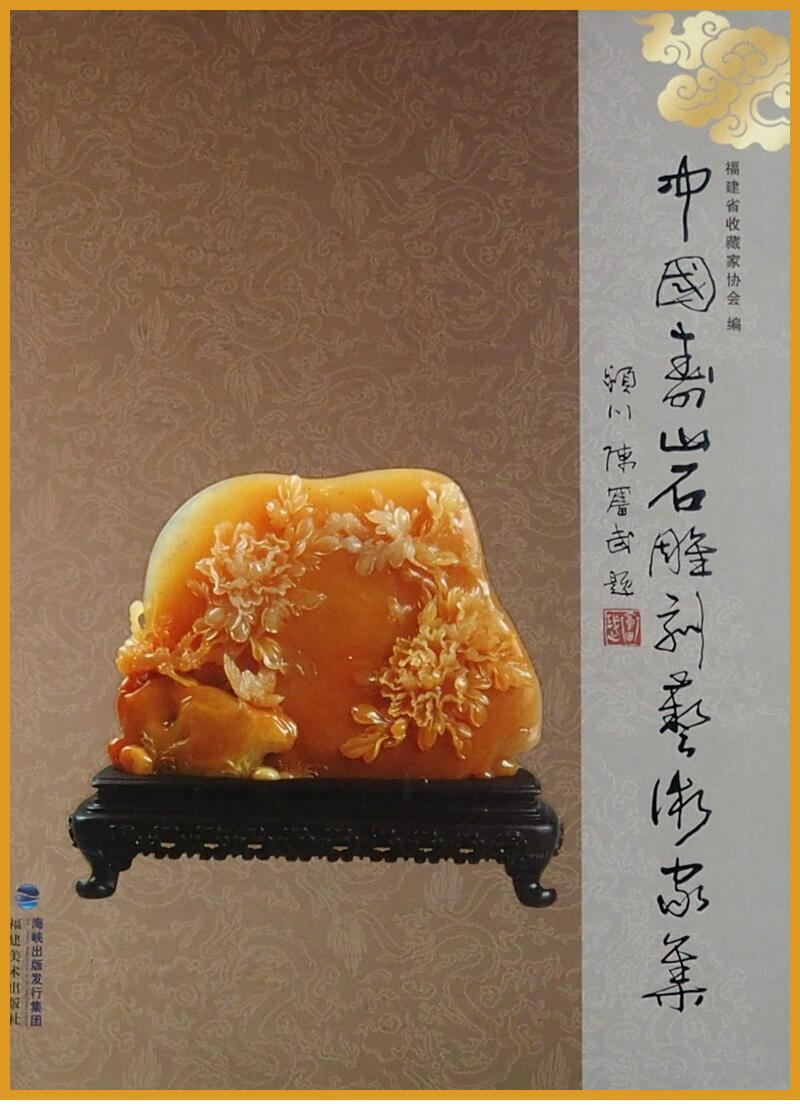 福建省收藏家协会 编
中國壽山石雕刻藝術家集
潁川 陳奮武 題
海峡出版发行集团
福建美术出版社